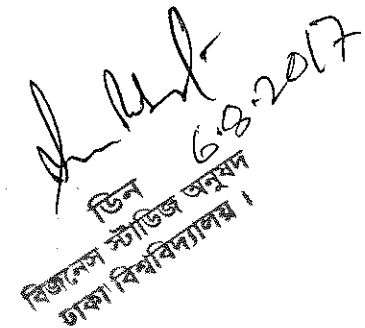 6.8.2017
ডিন
বিজনেস স্টাডিজ অনুষদ
ঢাকা বিশ্ববিদ্যালয়।